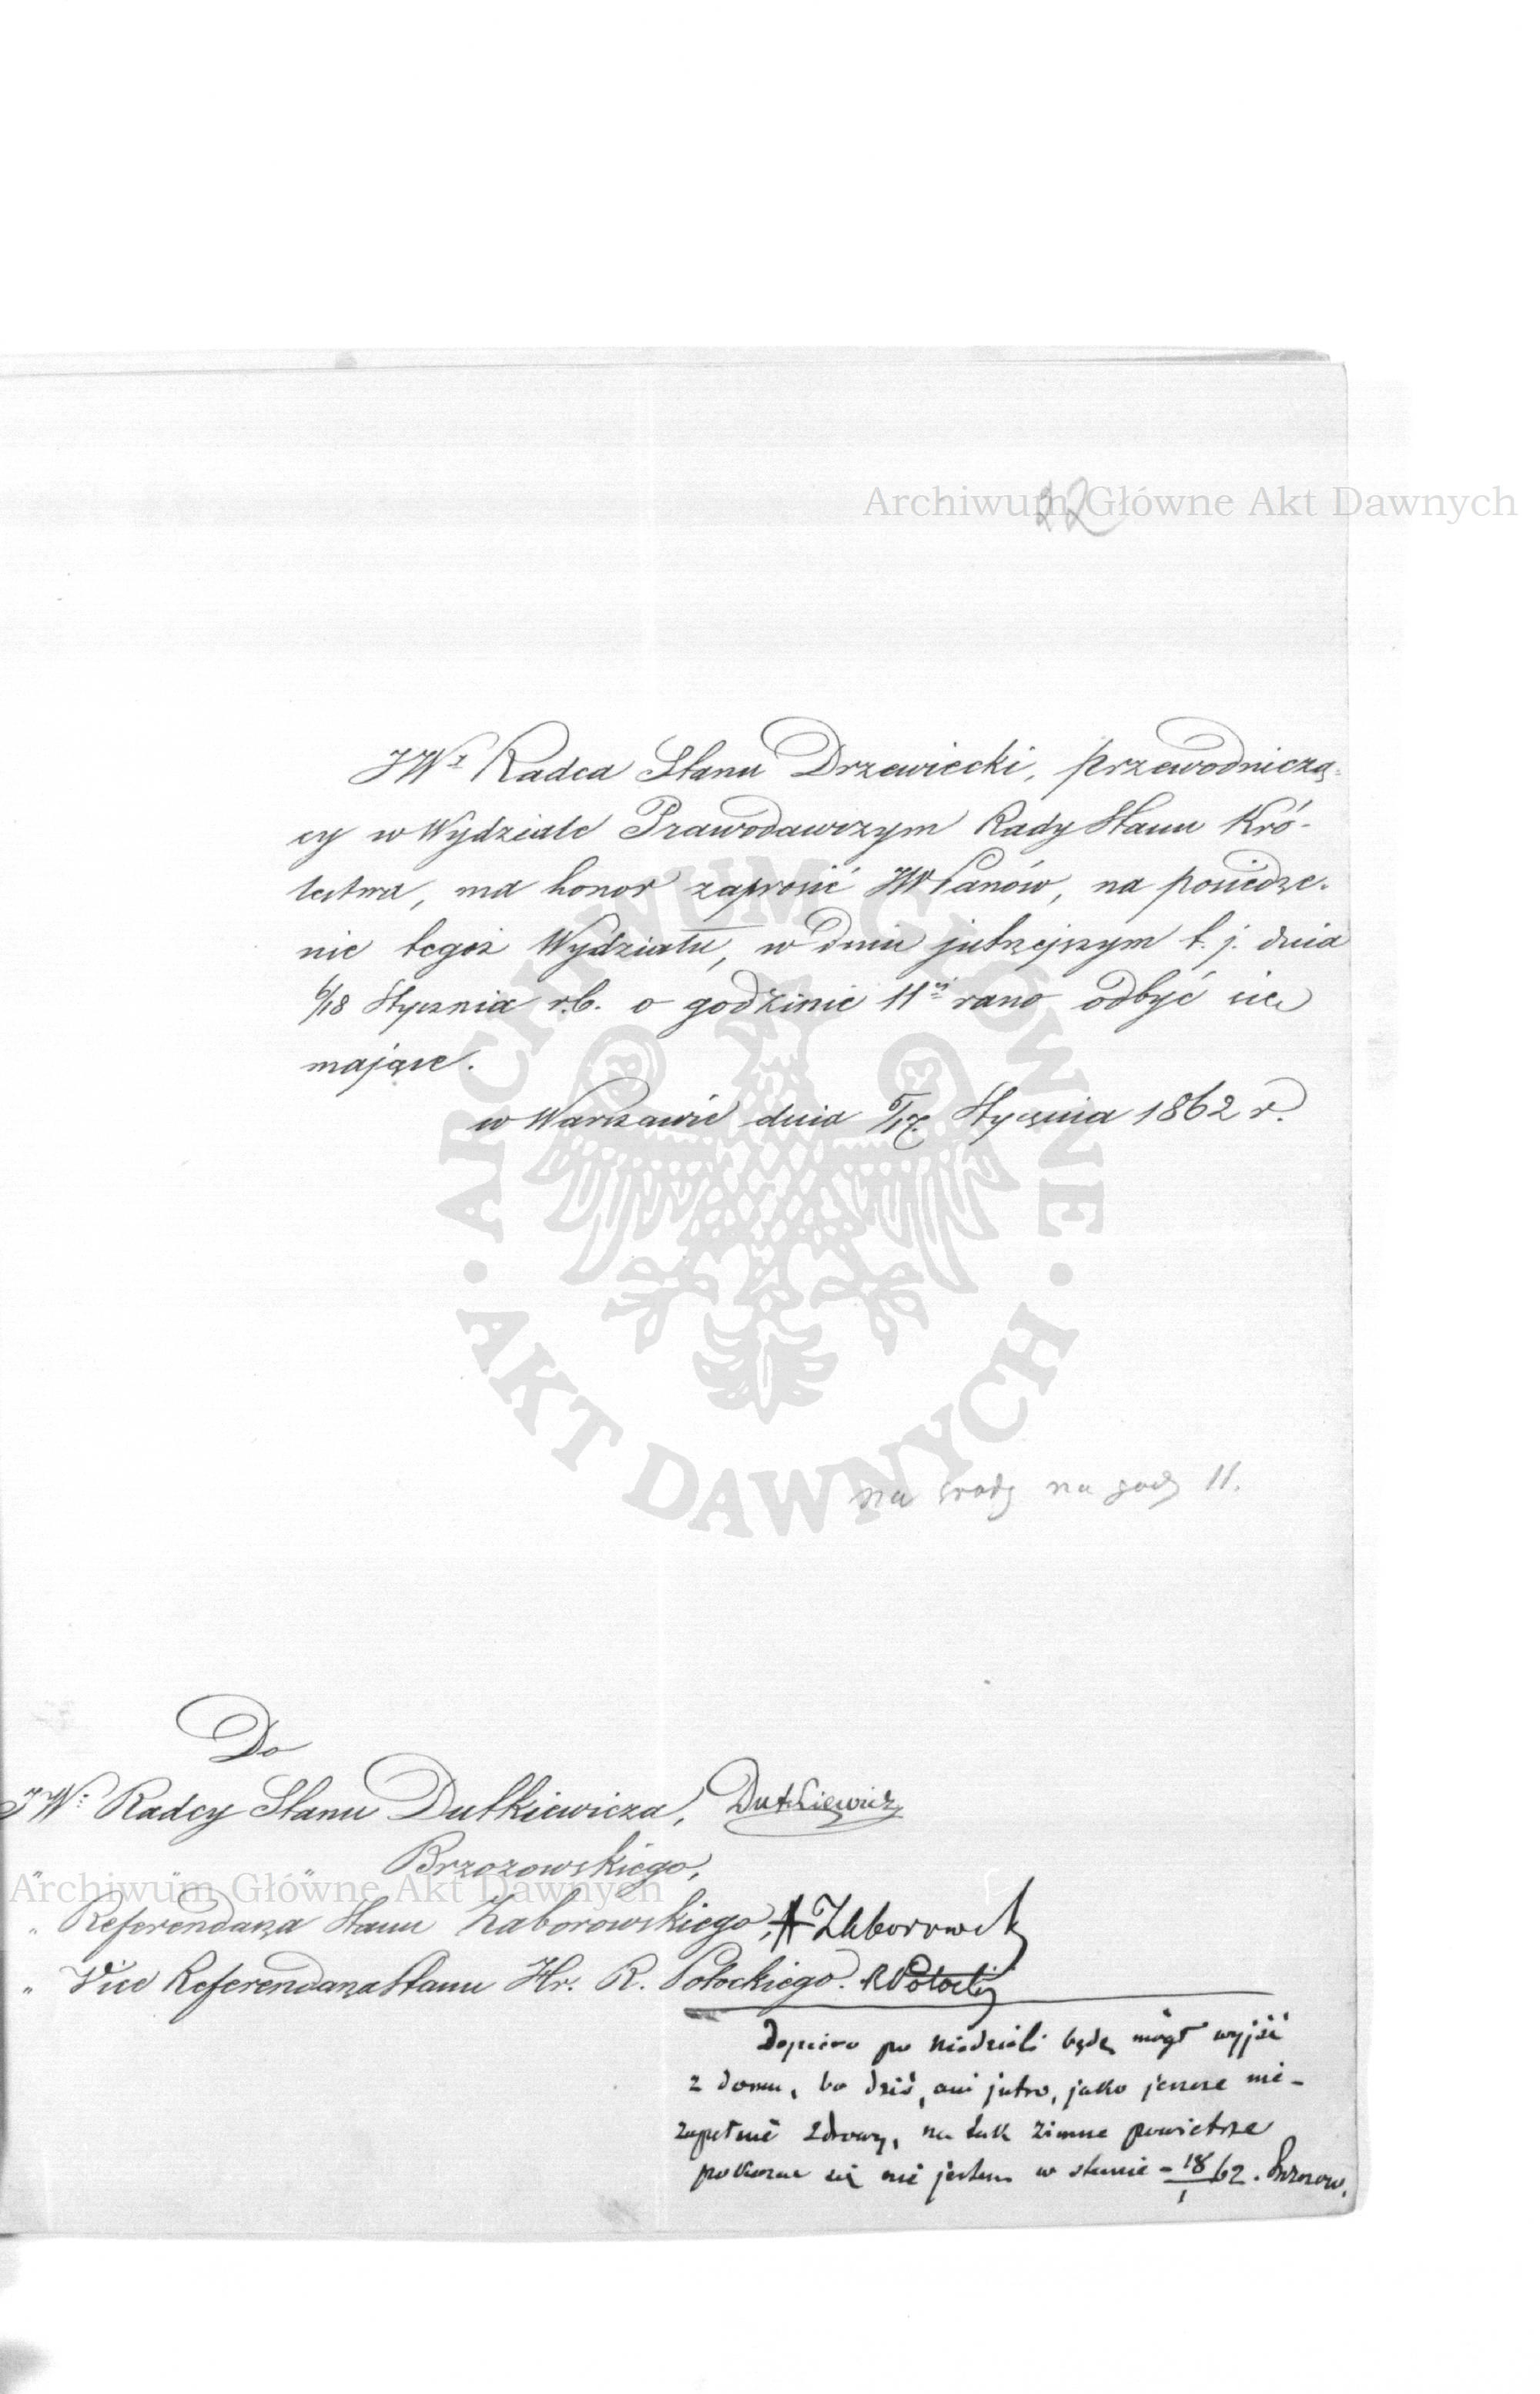 22
Archiwum Główne Akt Dawnych
JWż Radca Stanu Drzewiecki, przewodniczą-
cy w Wydziale Prawodawczym Rady Stanu Kró-
lestwa, ma honor zaprosić JWPanów, na posiedze-
nie tegoż Wydziału, w dniu jutrzejszym t. j. dnia
6/18 Stycznia r.b. o godzinie 11ej rano odbyć się
mające.
w Warszawie dnia 5/17 Stycznia 1862 r.
ARCHIWUM GŁÓWNE
AKT DAWNYCH
na środę na godz 11.
Do
JW: Radcy Stanu Dutkiewicza, Dutkiewicz
" " " Brzozowskiego,
Archiwum Główne Akt Dawnych
" Referendarza Stanu Zaborowskiego, A Zaborowsk
" Vice Referendarza Stanu Hr. R. Potockiego. R Potocki
Dopiero po niedzieli będę mógł wyjść
z domu, bo dziś, ani jutro, jako jeszcze nie-
zupełnie zdrowy, na tak zimne powietrze
pokazać się nie jestem w stanie - 18/1 62. Brzozow.